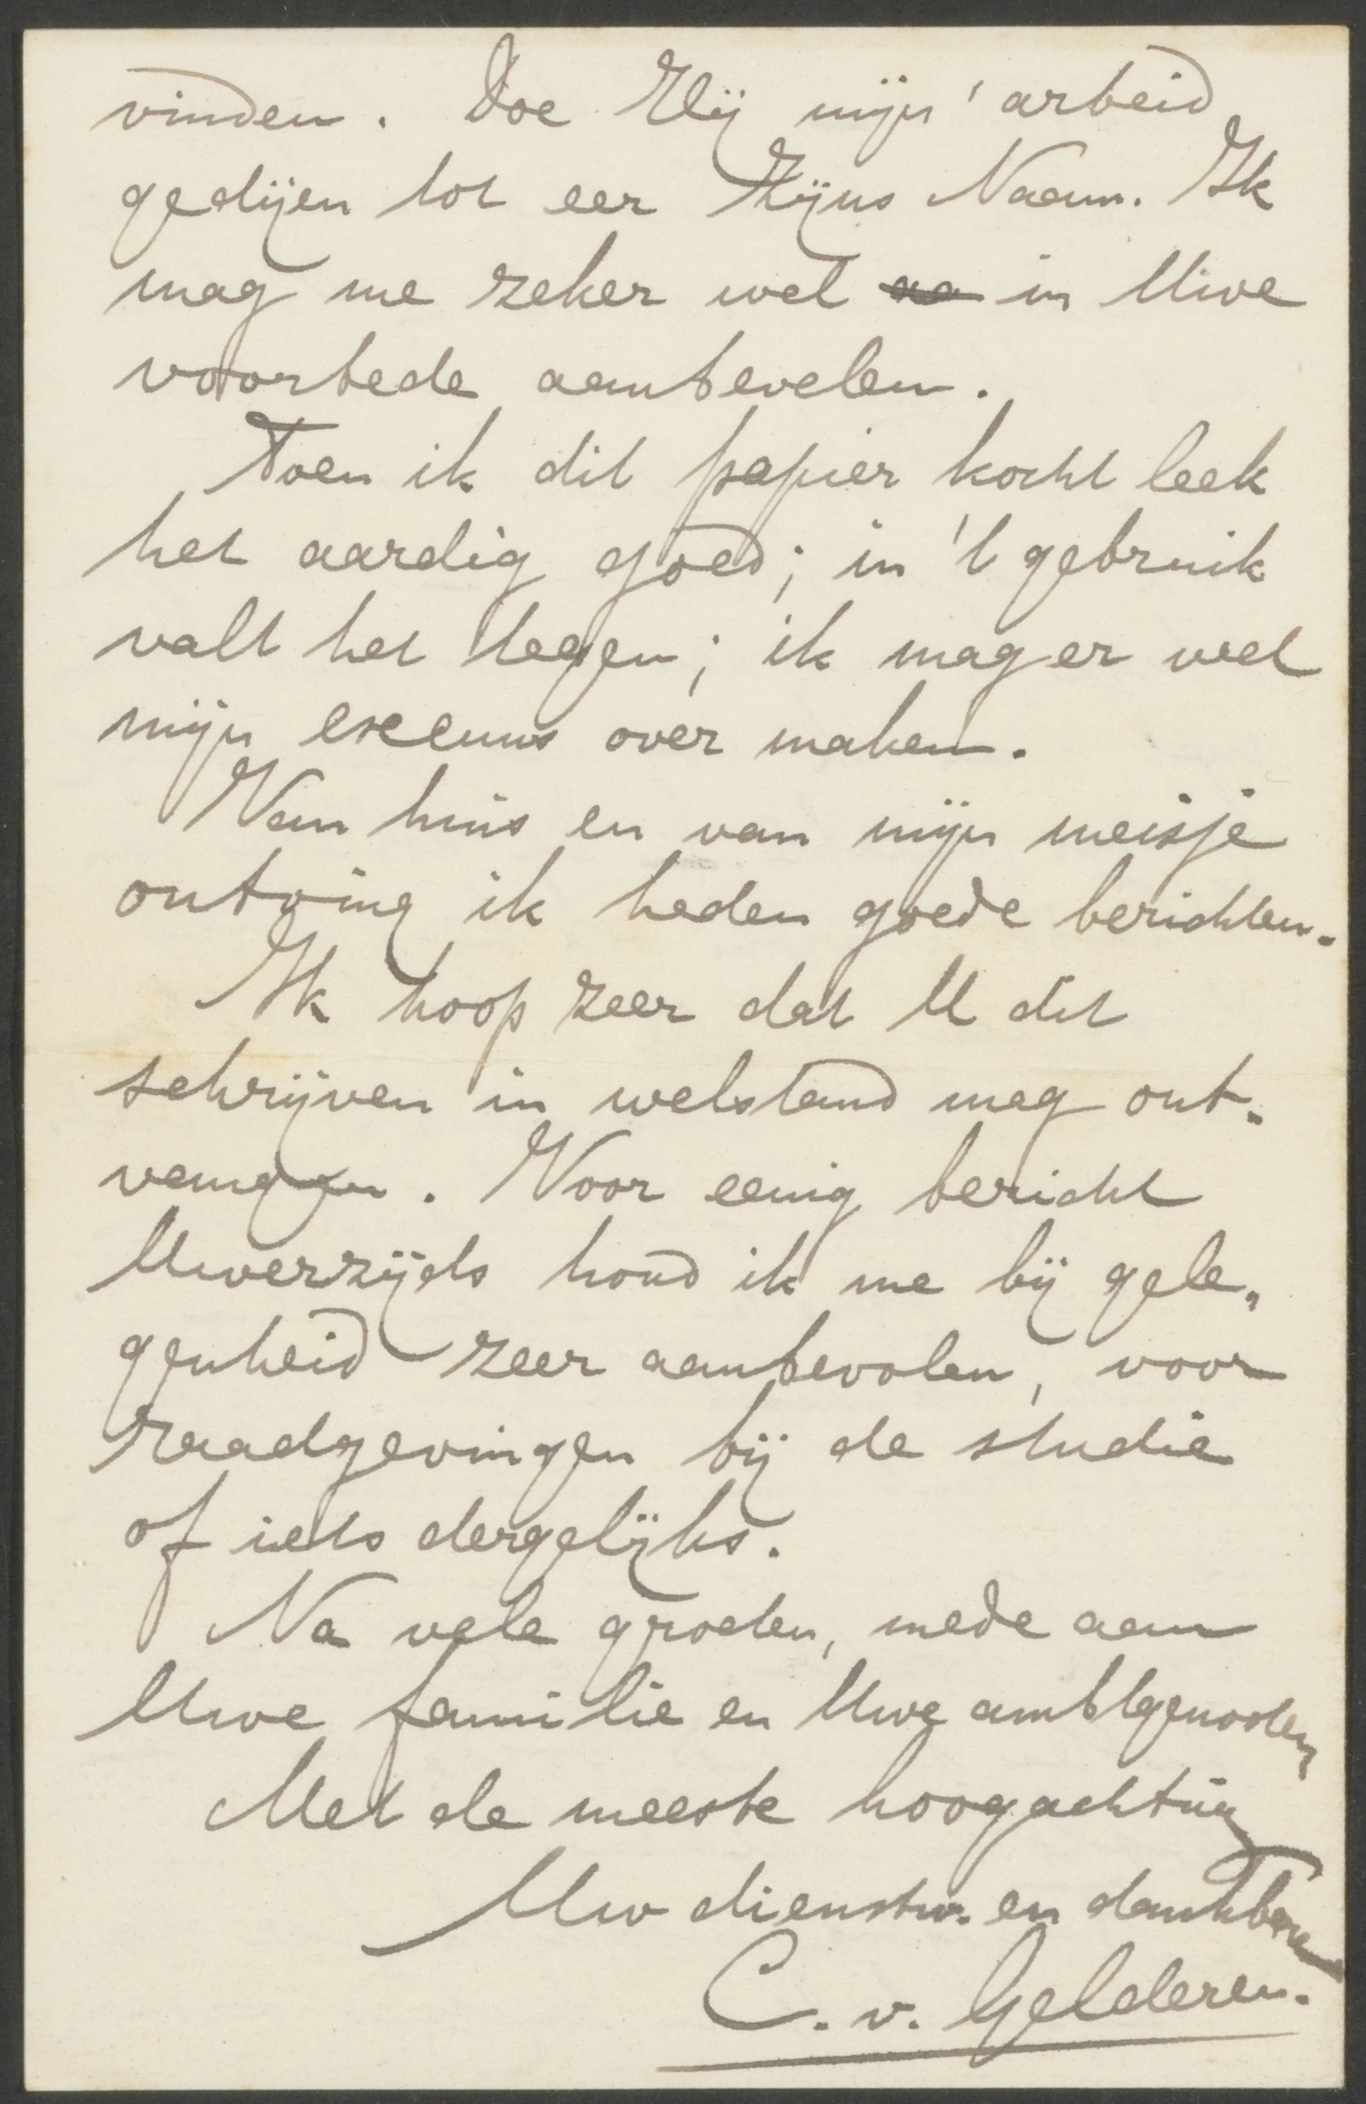 vinden. Doe Hij mijn' arbeid
gedijen tot eer Zijns Naam. Ik
mag me zeker wel aa in Uwe
voorbede aanbevelen.
Toen ik dit papier kocht leek
het aardig goed; in 't gebruik
valt het tegen; ik mag er wel
mijn excuus over maken.
Van huis en van mijn meisje
ontving ik heden goede berichten.
Ik hoop zeer dat U dit
schrijven in welstand mag ont-
vangen. Voor eenig bericht
Uwerzijds houd ik me bij gele-
genheid zeer aanbevolen, voor
raadgevingen bij de studie
of iets dergelijks.
Na vele groeten, mede aan
Uwe familie en Uwe ambtgenooten
Met de meeste hoogachting
Uw dienstw. en dankbare
C. v. Gelderen.